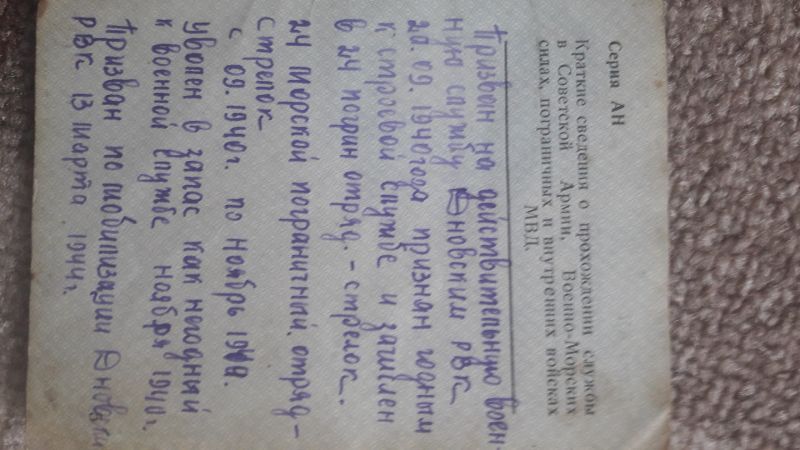 Серия АН
Краткие сведения о прохождении службы
в Советской Армии, Военно-Морских
силах, пограничных и внутренних войсках
МВД.
Призван на действительную воен-
ную службу Дновским рвк
20.09.1940 года признан годным
к строевой службе и зачислен
в 24 погран отряд. - стрелок.
24 Морской пограничный отряд -
стрелок
с 09.1940г. по ноябрь 1940.
уволен в запас как негодный
к военной службе ноября 1940г.
Призван по мобилизации Дновским
рвк 13 марта 1944г.